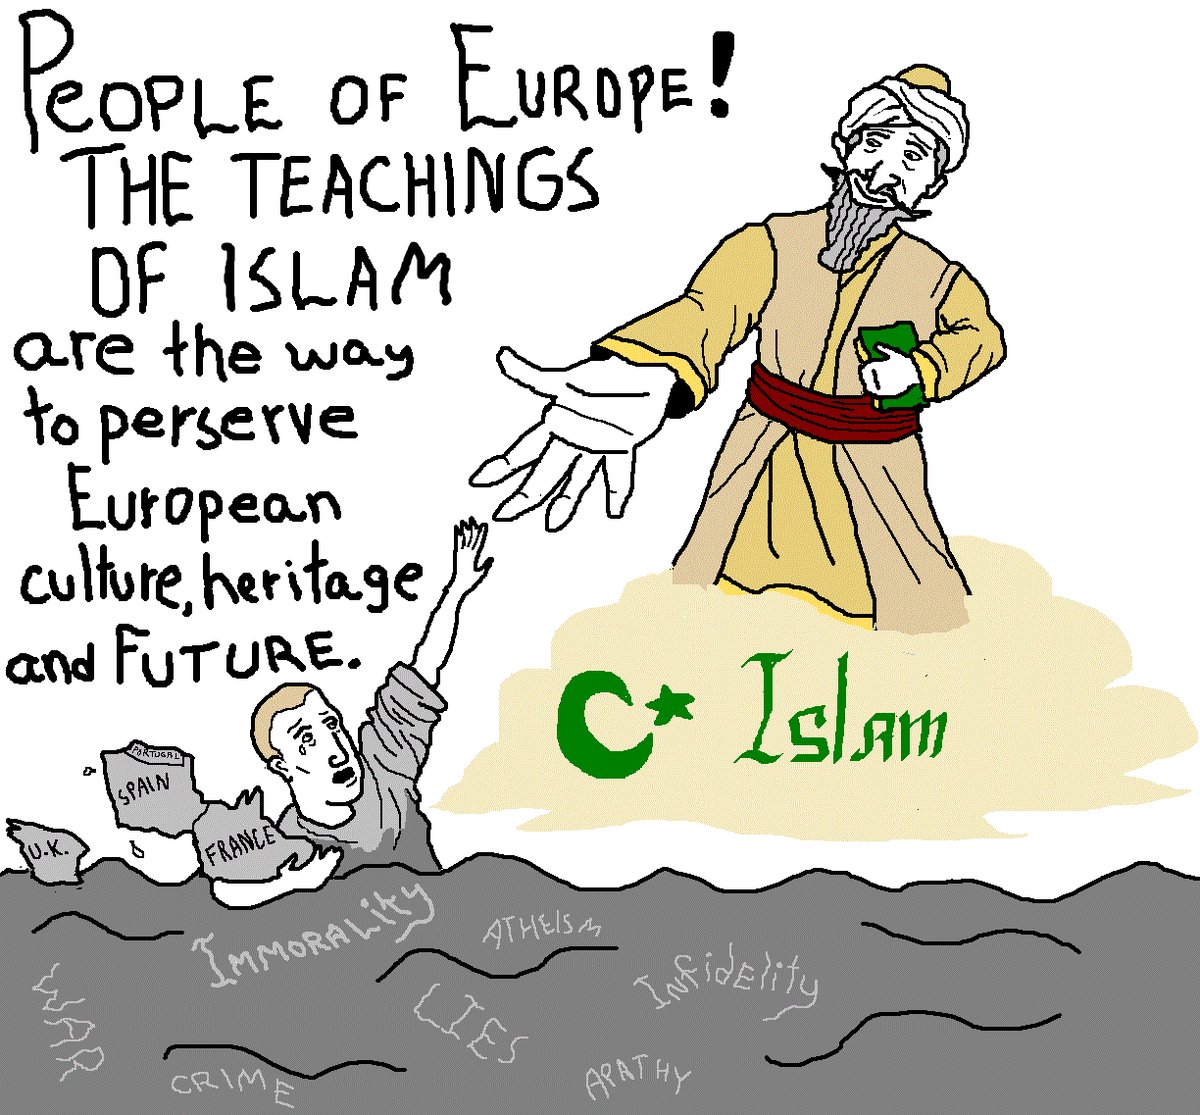 PEOPLE OF EUROPE!
THE TEACHINGS
OF ISLAM
are the way
to perserve
European
culture, heritage
and FUTURE.
Islam
PORTUGAL
SPAIN
U.K.
FRANCE
IMMORALITY
ATHEISM
INFIDELITY
WAR
LIES
CRIME
APATHY